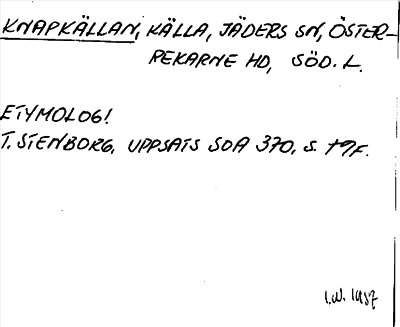 KNAPKÄLLAN, KÄLLA, JÄDERS SN, ÖSTER-
REKARNE HD, SÖD. L.
ETYMOLOG!
T. STENBORG, UPPSATS SOA 370, S.
I.W. 1957